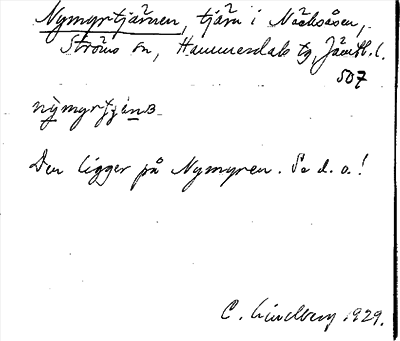 Nymyrtjärnen, tjärn i Näsåsen,
Ströms sn, Hammerdals tg, Jämtl. l.
507
nỳmyrtjánɜ
Den ligger på Nymyren. Se d. o.!
C. Lindberg 1929.